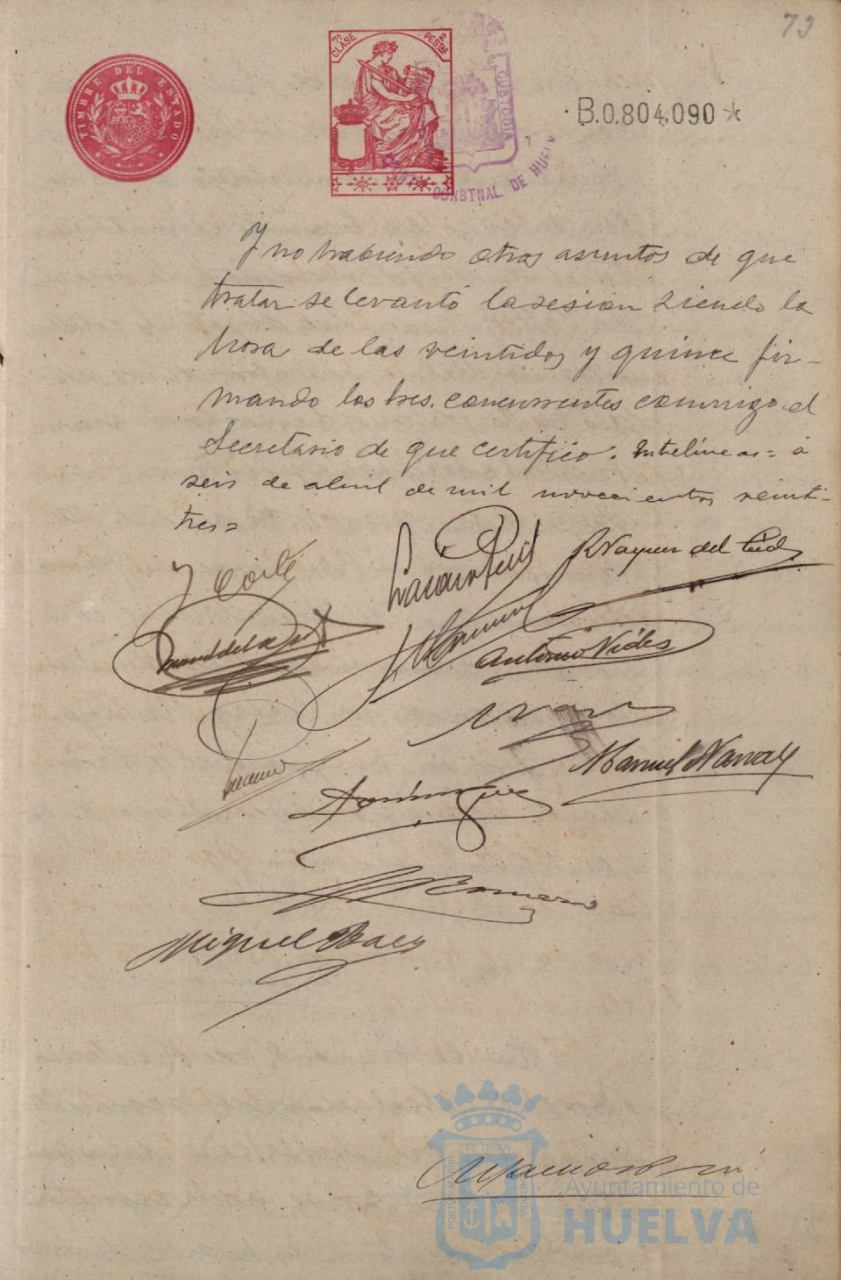 79
TIMBRE DEL ESTADO
7ª CLASE
2 PESETAS
CUSTODIA
CONSTNAL DE HUELVA
B.0.804.090 *
Y no habiendo otros asuntos de que
tratar se levantó la sesion siendo la
hora de las veintidos y quince fir-
mando los Sres. concurrentes conmigo el
Secretario de que certifico. Entrelineas = a
seis de abril de mil novecientos veinti-
tres =
Antonio Vides
Manuel Narvaez
Dominguez
Romero
Miguel Baez
Ayuntamiento de
HUELVA